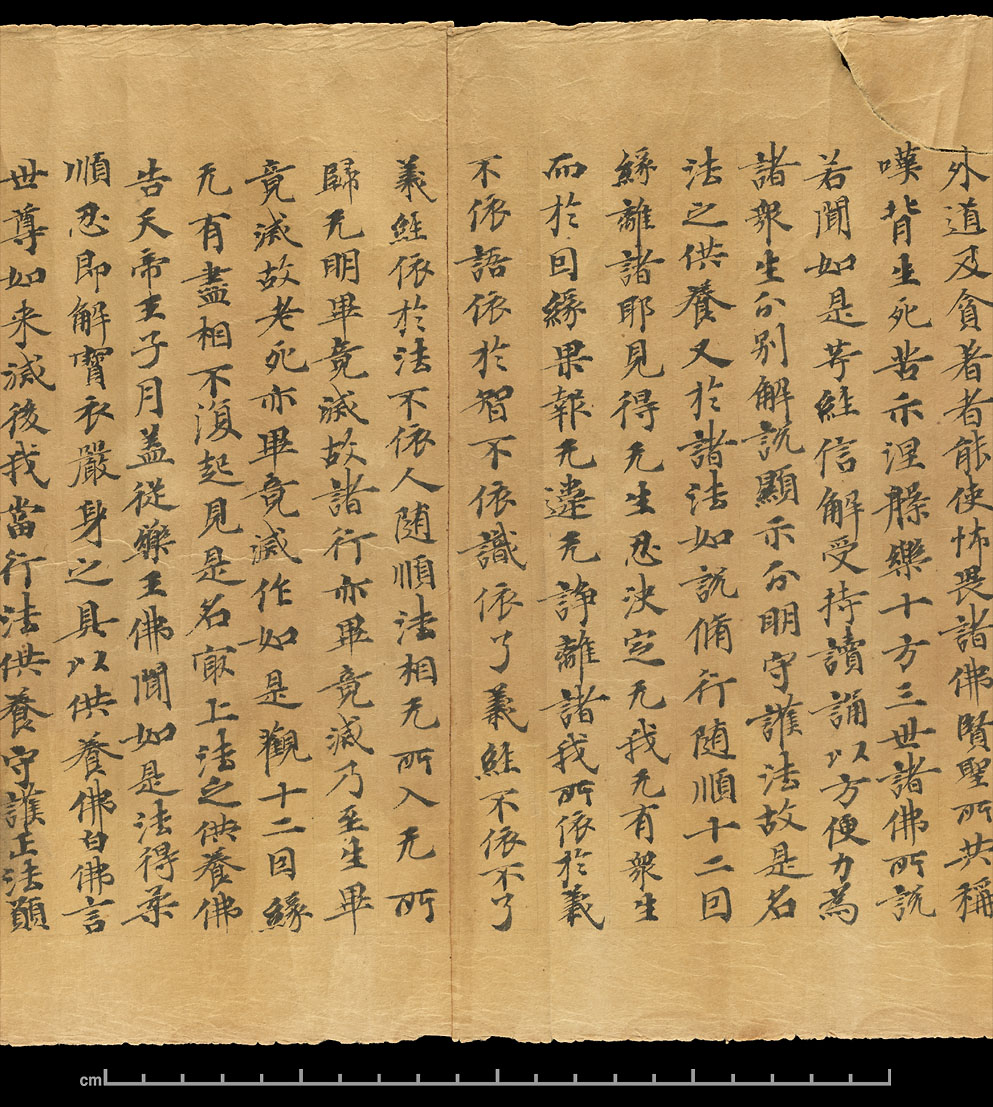 外道及貪著者能使怖畏諸佛賢聖所共稱
嘆背生死苦示涅槃樂十方三世諸佛所說
若聞如是等經信解受持讀誦以方便力為
諸衆生分別解說顯示分明守護法故是名
法之供養又於諸法如說脩行随順十二因
緣離諸耶見得无生忍決定无我无有衆生
而於因緣果報无違无諍離諸我所依於義
不依語依於智不依識依了義經不依不了
義經依於法不依人随順法相无所入无所
歸无明畢竟滅故諸行亦畢竟滅乃至生畢
竟滅故老死亦畢竟滅作如是觀十二因緣
无有盡相不復起見是名冣上法之供養佛
告天帝王子月盖從藥王佛聞如是法得柔
順忍即解寶衣嚴身之具以供養佛白佛言
世尊如来滅後我當行法供養守護正法願